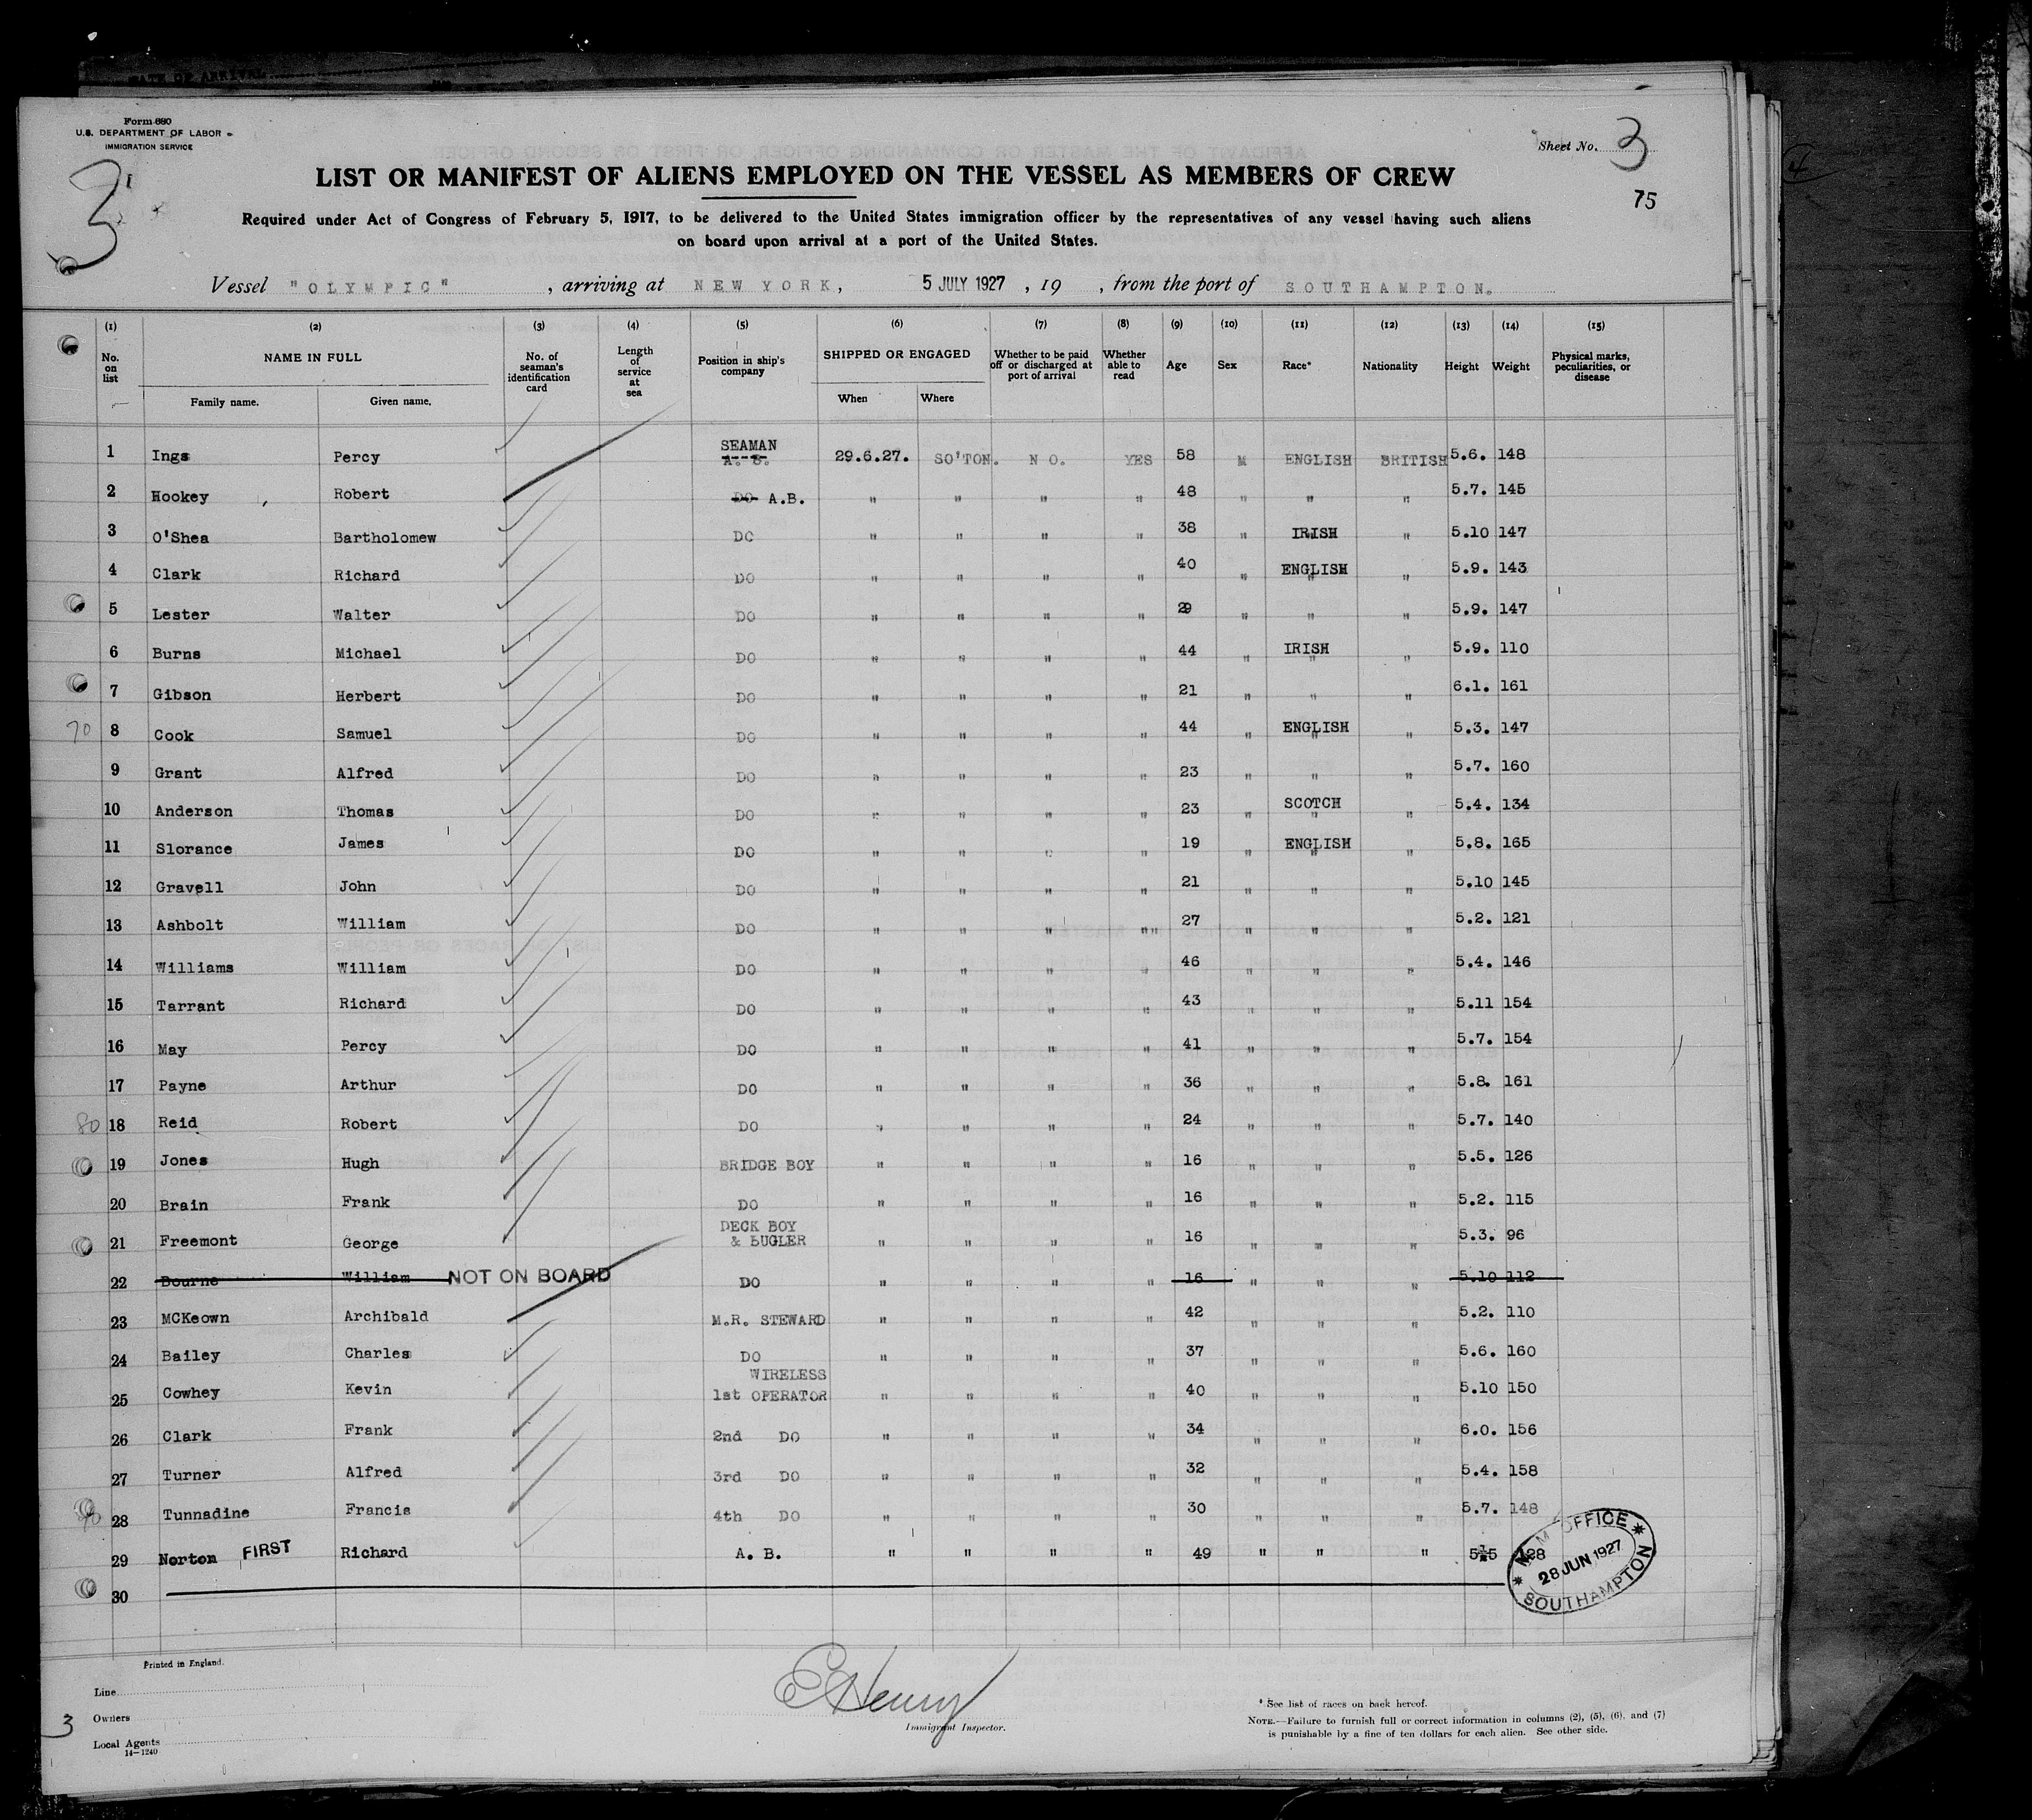 Form 680
U.S. DEPARTMENT OF LABOR
IMMIGRATION SERVICE
Sheet No. 3
3
75
LIST OR MANIFEST OF ALIENS EMPLOYED ON THE VESSEL AS MEMBERS OF CREW
Required under Act of Congress of February 5, 1917, to be delivered to the United States immigration officer by the representatives of any vessel having such aliens
on board upon arrival at a port of the United States.
Vessel "OLYMPIC", arriving at NEW YORK, 5 JULY 1927, 19 , from the port of SOUTHAMPTON.
(1) (2) (3) (4) (5) (6) (7) (8) (9) (10) (11) (12) (13) (14) (15)
No. on list NAME IN FULL Family name. Given name. No. of seaman's identification card Length of service at sea Position in ship's company SHIPPED OR ENGAGED When Where Whether to be paid off or discharged at port of arrival Whether able to read Age Sex Race* Nationality Height Weight Physical marks, peculiarities, or disease
1 Ings Percy SEAMAN A. B. 29.6.27. SO'TON. NO. YES 58 M ENGLISH BRITISH 5.6. 148
2 Hookey Robert DO A.B. " " " " 48 " " " 5.7. 145
3 O'Shea Bartholomew DO " " " " 38 " IRISH " 5.10 147
4 Clark Richard DO " " " " 40 " ENGLISH " 5.9. 143
5 Lester Walter DO " " " " 29 " " " 5.9. 147
6 Burns Michael DO " " " " 44 " IRISH " 5.9. 110
7 Gibson Herbert DO " " " " 21 " " " 6.1. 161
70 8 Cook Samuel DO " " " " 44 " ENGLISH " 5.3. 147
9 Grant Alfred DO " " " " 23 " " " 5.7. 160
10 Anderson Thomas DO " " " " 23 " SCOTCH " 5.4. 134
11 Slorance James DO " " " " 19 " ENGLISH " 5.8. 165
12 Gravell John DO " " " " 21 " " " 5.10 145
13 Ashbolt William DO " " " "" 27 " " " 5.2. 121
14 Williams William DO " " " " 46 " " " 5.4. 146
15 Tarrant Richard DO " " " " 43 " " " 5.11 154
16 May Percy DO " " " " 41 " " " 5.7. 154
17 Payne Arthur DO " " " " 36 " " " 5.8. 161
80 18 Reid Robert DO " " " " 24 " " " 5.7. 140
19 Jones Hugh BRIDGE BOY " " " " 16 " " " 5.5. 126
20 Brain Frank DO " " " " 16 " " " 5.2. 115
21 Freemont George DECK BOY & BUGLER " " " " 16 " " " 5.3. 96
22 Bourne William NOT ON BOARD DO " " " " 16 " " " 5.10 112
23 MCKeown Archibald M.R. STEWARD " " " " 42 " " " 5.2. 110
24 Bailey Charles DO " " " " 37 " " " 5.6. 160
25 Cowhey Kevin WIRELESS 1st OPERATOR " " " " 40 " " " 5.10 150
26 Clark Frank 2nd DO " " " " 34 " " " 6.0. 156
27 Turner Alfred 3rd DO " " " " 32 " " " 5.4. 158
90 28 Tunnadine Francis 4th DO " " " " 30 " " " 5.7. 148
29 Norton FIRST Richard A. B. " " " " 49 " " "
30
OFFICE
28 JUN 1927
SOUTHAMPTON
Printed in England.
Line
Owners
Local Agents
14-1240
3
E Henry
Immigrant Inspector.
* See list of races on back hereof.
NOTE.—Failure to furnish full or correct information in columns (2), (5), (6), and (7)
is punishable by a fine of ten dollars for each alien. See other side.